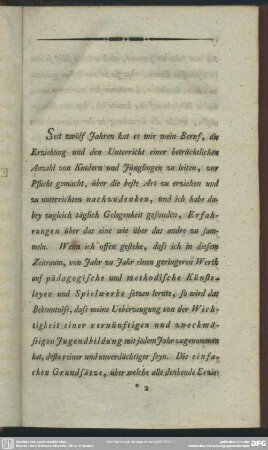 Seit zwölf Jahren hat es mir mein Beruf, die
Erziehung und den Unterricht einer beträchtlichen
Anzahl von Kindern und Jünglingen zu leiten, zur
Pflicht gemacht, über die beste Art zu erziehen und
zu unterrichten nachzudenken, und ich habe da-
bey zugleich täglich Gelegenheit gefunden, Erfah-
rungen über das eine wie über das andre zu sam-
meln. Wenn ich offen gestehe, dass ich in diesem
Zeitraum, von Jahr zu Jahr einen geringeren Werth
auf pädagogische und methodische Künste-
leyen und Spielwerke setzen lernte, so wird das
Bekenntniss, dass meine Ueberzeugung von der Wich-
tigkeit einer vernünftigen und zweckmä-
ssigen Jugendbildung mit jedem Jahr zugenommen
hat, desto reiner und unverdächtiger seyn. Die einfa-
chen Grundsätze, über welche alle denkende Erzie-
* 2